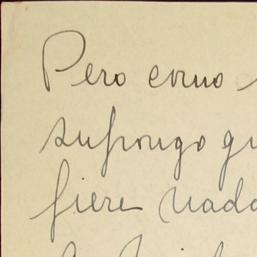 Pero como
supongo qu
fiere nada